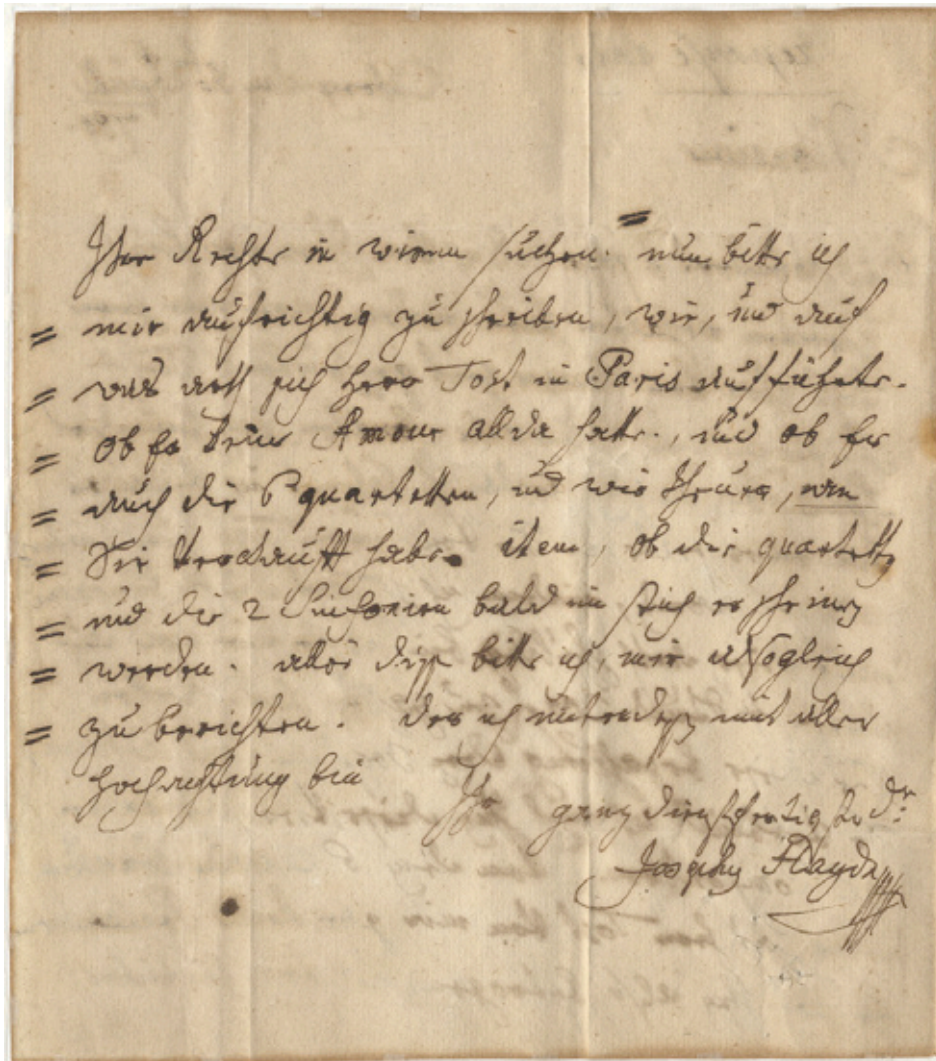 Ihre Rechte in Wienn suchen. nun bitte ich
= mir aufrichtig zu schreiben, wie, und auf
= was arth sich Herr Tost in Paris aufführte.
= ob Er keine Amour allda hatte., und ob Er
= auch die 6 quartetten, und wie theuer,
= Sie verkaufft habe. item, ob die quartetten
= und die 2 Sinfonien bald im stich erscheinen
= werden. alles diss bitte ich, mir alsogleich
= zu berichten. der ich mit aller
Hochachtung bin
Ihr ganz dienstfertigster dr:
Joseph Haydn